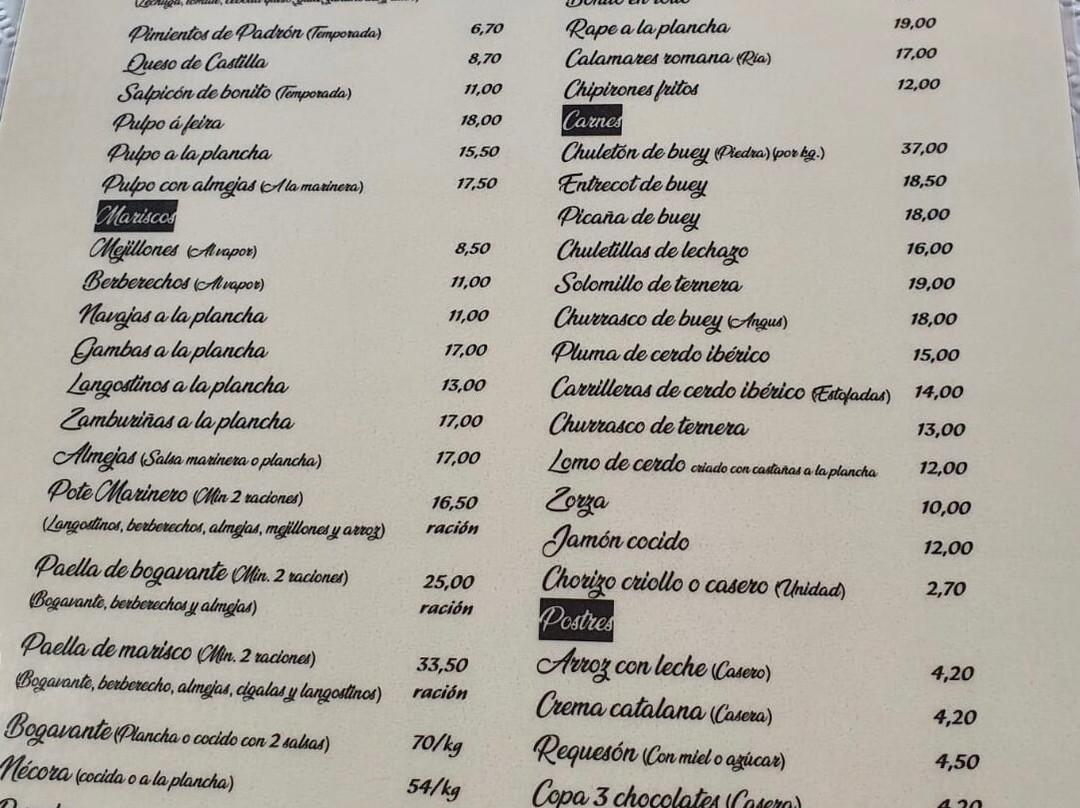 Pimientos de Padrón (Temporada) 6,70
Queso de Castilla 8,70
Salpicón de bonito (Temporada) 11,00
Pulpo á feira 18,00
Pulpo a la plancha 15,50
Pulpo con almejas (A la marinera) 17,50
Mariscos
Mejillones (Al vapor) 8,50
Berberechos (Al vapor) 11,00
Navajas a la plancha 11,00
Gambas a la plancha 17,00
Langostinos a la plancha 13,00
Zamburiñas a la plancha 17,00
Almejas (Salsa marinera o plancha) 17,00
Pote Marinero (Min 2 raciones) 16,50
(Langostinos, berberechos, almejas, mejillones y arroz) ración
Paella de bogavante (Min. 2 raciones) 25,00
(Bogavante, berberechos y almejas) ración
Paella de marisco (Min. 2 raciones) 33,50
(Bogavante, berberecho, almejas, cigalas y langostinos) ración
Bogavante (Plancha o cocido con 2 salsas) 70/kg
Nécora (cocida o a la plancha) 54/kg
Rape a la plancha 19,00
Calamares romana (Ría) 17,00
Chipirones fritos 12,00
Carnes
Chuletón de buey (Piedra) (por kg.) 37,00
Entrecot de buey 18,50
Picaña de buey 18,00
Chuletillas de lechazo 16,00
Solomillo de ternera 19,00
Churrasco de buey (Angus) 18,00
Pluma de cerdo ibérico 15,00
Carrilleras de cerdo ibérico (Estofadas) 14,00
Churrasco de ternera 13,00
Lomo de cerdo criado con castañas a la plancha 12,00
Zorza 10,00
Jamón cocido 12,00
Chorizo criollo o casero (Unidad) 2,70
Postres
Arroz con leche (Casero) 4,20
Crema catalana (Casera) 4,20
Requesón (Con miel o azúcar) 4,50
Copa 3 chocolates (Casera) 4,20